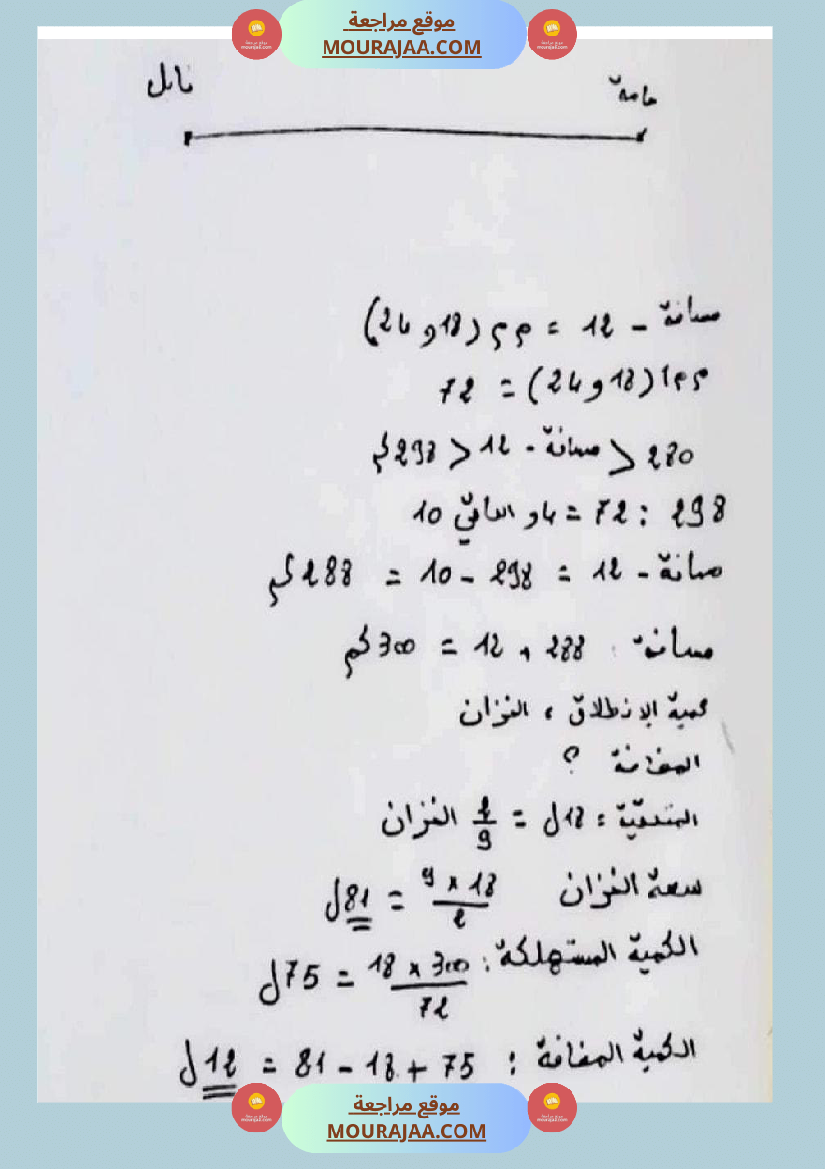 موقع مراجعة
MOURAJAA.COM
نابل
مسافة - 12 = م م (18 و 24)
م م أ (18 و 24) = 72
280 < مسافة - 12 < 298 كم
298 : 72 = 4 و الباقي 10
مسافة - 12 = 298 - 10 = 288 كم
مسافة : 288 + 12 = 300 كم
كمية الإنطلاق ، الخزان
المضافة ؟
المتبقية : 18 ل = 2/9 الخزان
سعة الخزان 18 × 9 / 2 = 81 ل
الكمية المستهلكة : 300 × 18 / 72 = 75 ل
الكمية المضافة : 75 + 18 - 81 = 12 ل
موقع مراجعة
MOURAJAA.COM